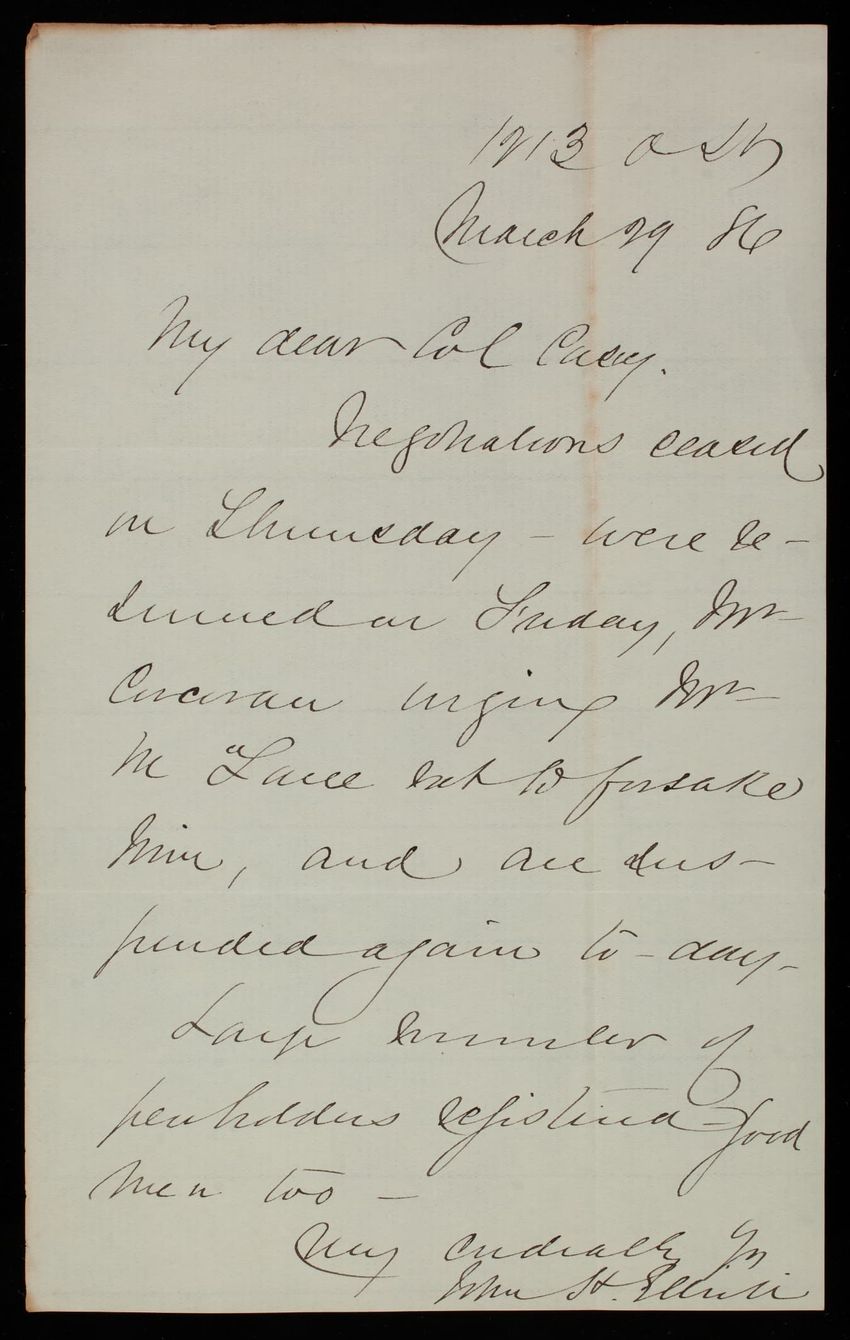 1213 O St
March 29 86
My dear Col Casey.
Negotiations ceased
on Thursday - were re-
sumed on Friday, Mr
Corcoran urging Mr
McLane not to forsake
him, and are sus-
pended again to-day-
Large number of
penholders registered - good
men too -
Very cordially Yrs
John H.